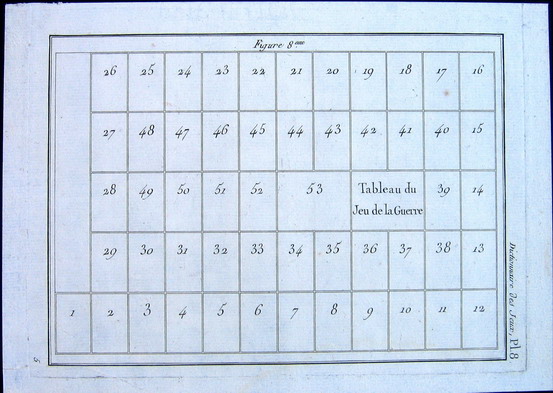 Figure 8eme
26 25 24 23 22 21 20 19 18 17 16
27 48 47 46 45 44 43 42 41 40 15
28 49 50 51 52 53 Tableau du Jeu de la Guerre 39 14
29 30 31 32 33 34 35 36 37 38 13
1 2 3 4 5 6 7 8 9 10 11 12
Dictionnaire des Jeux, Pl. 8